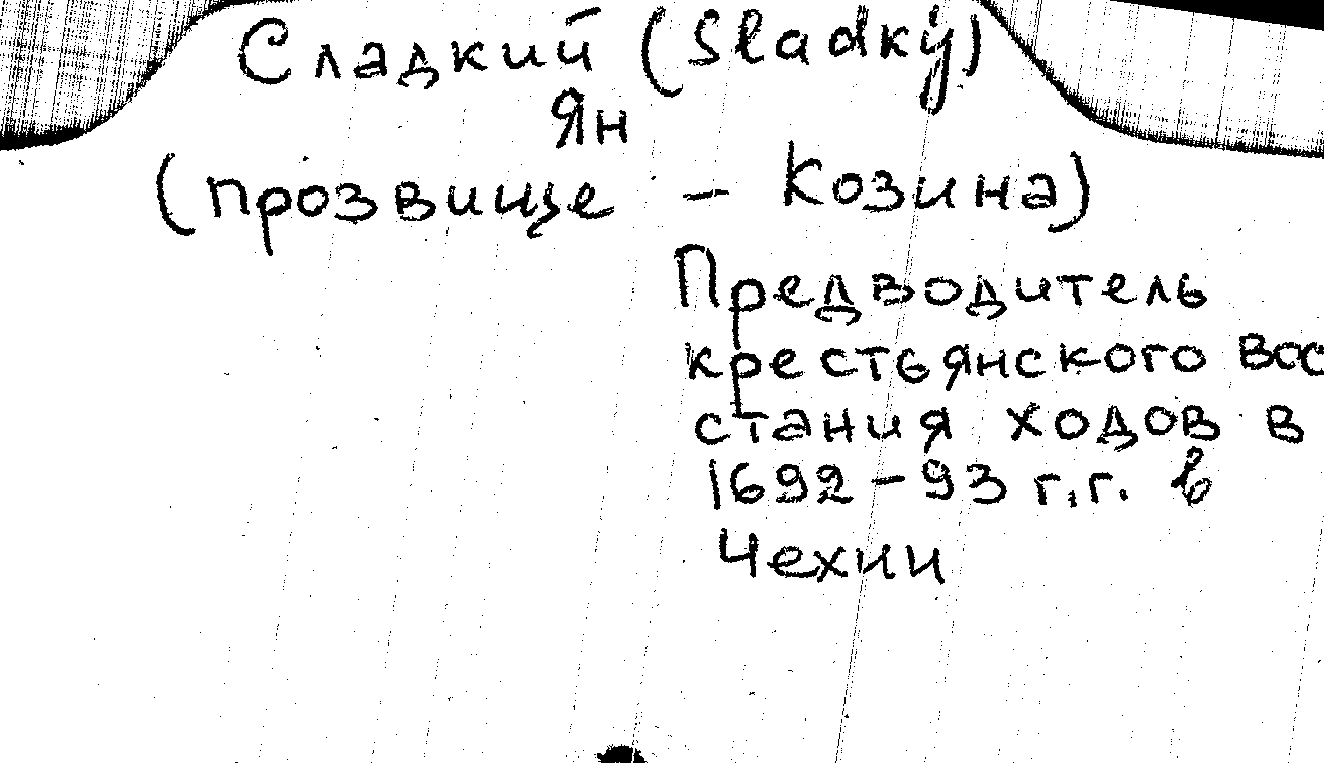 Сладкий (Sladký)
Ян
(прозвище – Козина)
Предводитель
крестьянского вос
стания ходов в
1692-93 г.г. в
Чехии